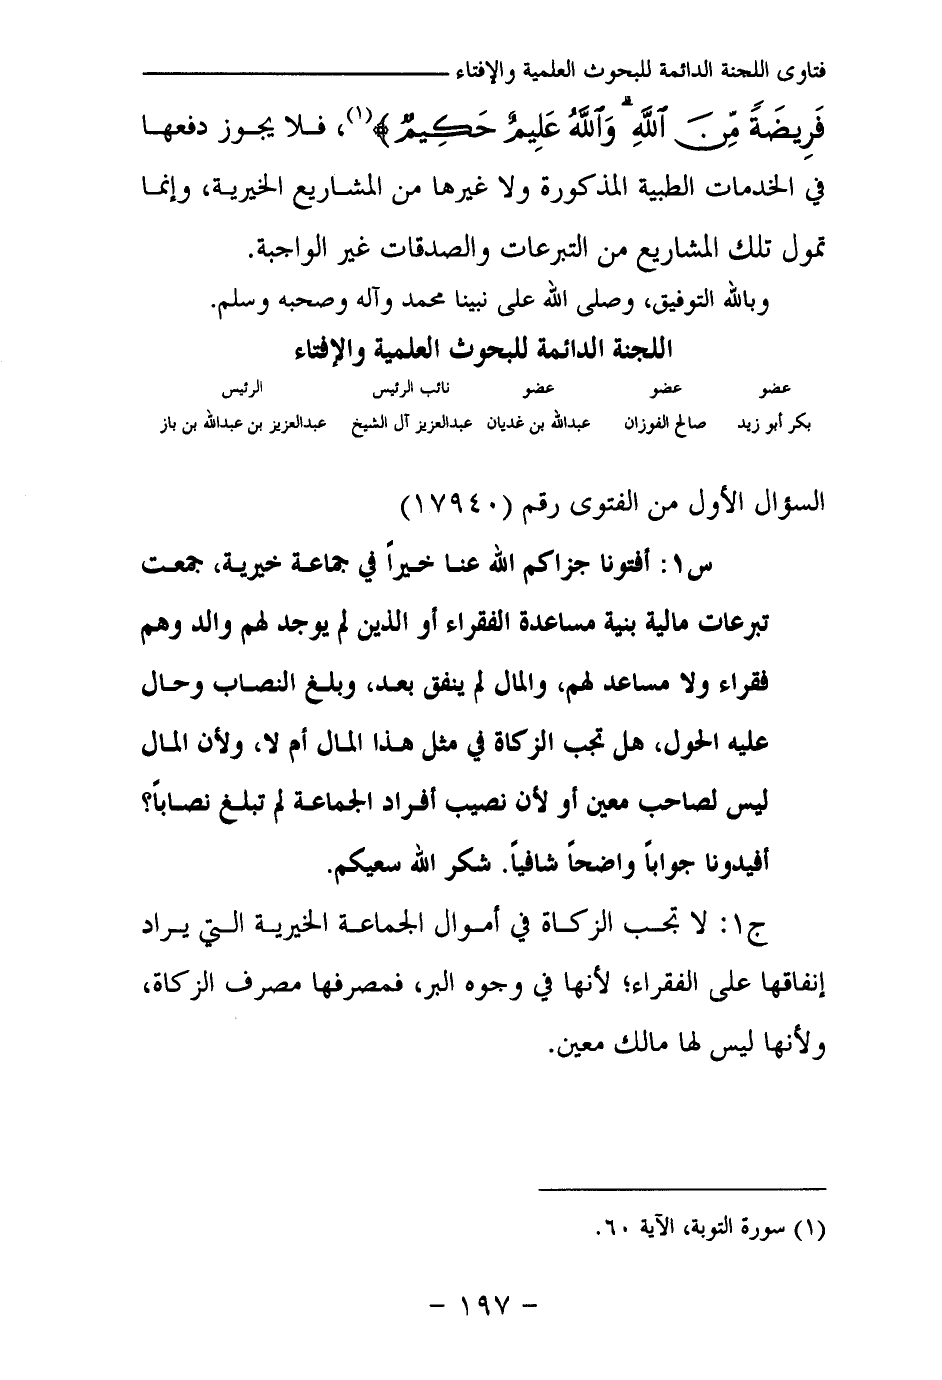 فتاوى اللجنة الدائمة للبحوث العلمية والإفتاء
فَرِيضَةً مِّنَ ٱللَّهِ ۗ وَٱللَّهُ عَلِيمٌ حَكِيمٌ﴾(١)، فلا يجوز دفعها
في الخدمات الطبية المذكورة ولا غيرها من المشاريع الخيرية، وإنما
تمول تلك المشاريع من التبرعات والصدقات غير الواجبة.
وبالله التوفيق، وصلى الله على نبينا محمد وآله وصحبه وسلم.
اللجنة الدائمة للبحوث العلمية والإفتاء
عضو عضو عضو نائب الرئيس الرئيس
بكر أبو زيد صالح الفوزان عبدالله بن غديان عبدالعزيز آل الشيخ عبدالعزيز بن عبدالله بن باز
السؤال الأول من الفتوى رقم (١٧٩٤٠)
س١: أفتونا جزاكم الله عنا خيراً في جماعة خيرية، جمعت
تبرعات مالية بنية مساعدة الفقراء أو الذين لم يوجد لهم والد وهم
فقراء ولا مساعد لهم، والمال لم ينفق بعد، وبلغ النصاب وحال
عليه الحول، هل تجب الزكاة في مثل هذا المال أم لا، ولأن المال
ليس لصاحب معين أو لأن نصيب أفراد الجماعة لم تبلغ نصاباً؟
أفيدونا جواباً واضحاً شافياً. شكر الله سعيكم.
ج١: لا تجب الزكاة في أموال الجماعة الخيرية التي يراد
إنفاقها على الفقراء؛ لأنها في وجوه البر، فمصرفها مصرف الزكاة،
ولأنها ليس لها مالك معين.
(١) سورة التوبة، الآية ٦٠.
- ١٩٧ -